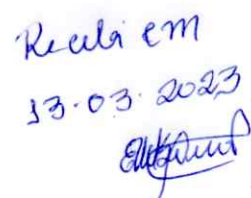 Recebi em
13.03.2023